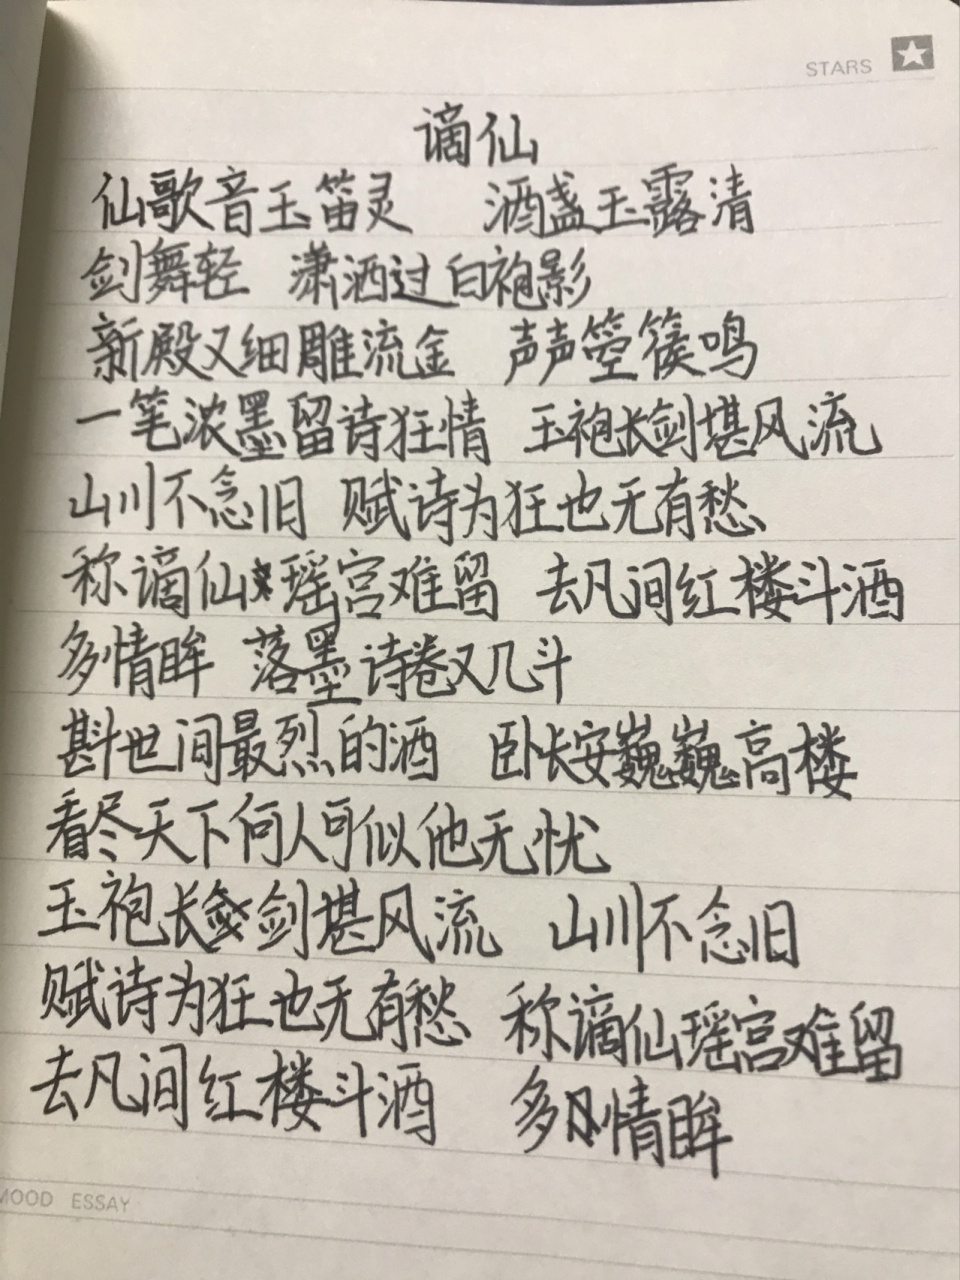 STARS
谪仙
仙歌音玉笛灵 酒盏玉露清
剑舞轻 潇洒过白袍影
新殿又细雕流金 声声箜篌鸣
一笔浓墨留诗狂情 玉袍长剑堪风流
山川不念旧 赋诗为狂也无有愁
称谪仙瑶宫难留 去凡间红楼斗酒
多情眸 落墨诗卷又几斗
斟世间最烈的酒 卧长安巍巍高楼
看尽天下何人可似他无忧
玉袍长剑堪风流 山川不念旧
赋诗为狂也无有愁 称谪仙瑶宫难留
去凡间红楼斗酒 多情眸
MOOD ESSAY